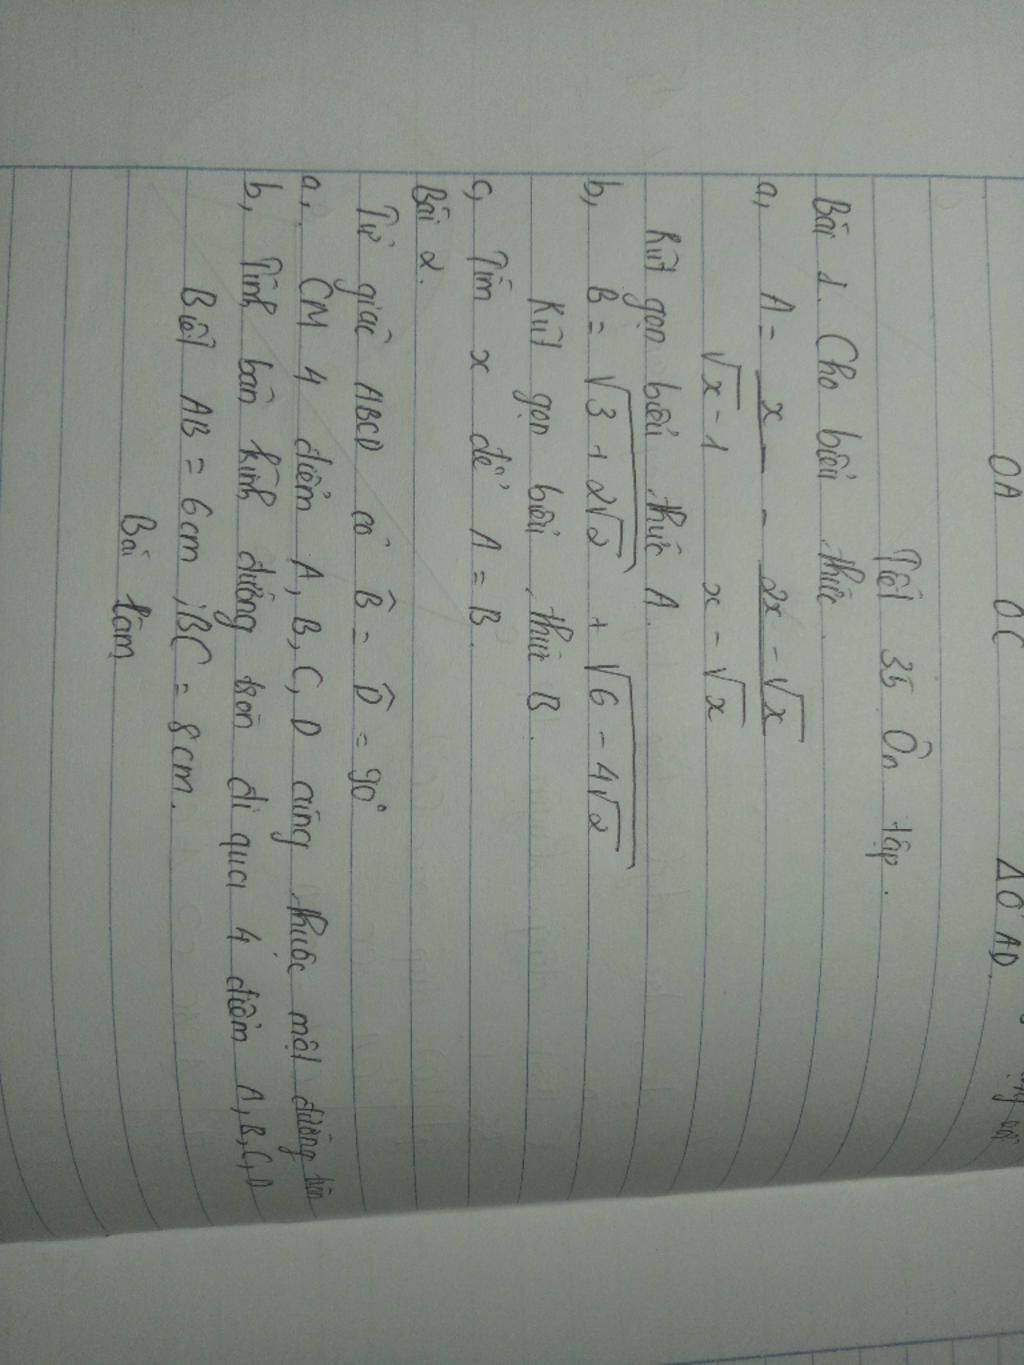 OA OC ΔOAD
Tiết 35 Ôn tập.
Bài 1. Cho biểu thức.
a, A = x/(√x - 1) - (2x - √x)/(x - √x)
Rút gọn biểu thức A.
b, B = √(3 + 2√2) + √(6 - 4√2)
Rút gọn biểu thức B.
c, Tìm x để A = B.
Bài 2.
Tứ giác ABCD có B̂ = D̂ = 90°
a, CM 4 điểm A, B, C, D cùng thuộc một đường tròn
b, Tính bán kính đường tròn đi qua 4 điểm A, B, C, D
Biết AB = 6cm ; BC = 8cm.
Bài làm